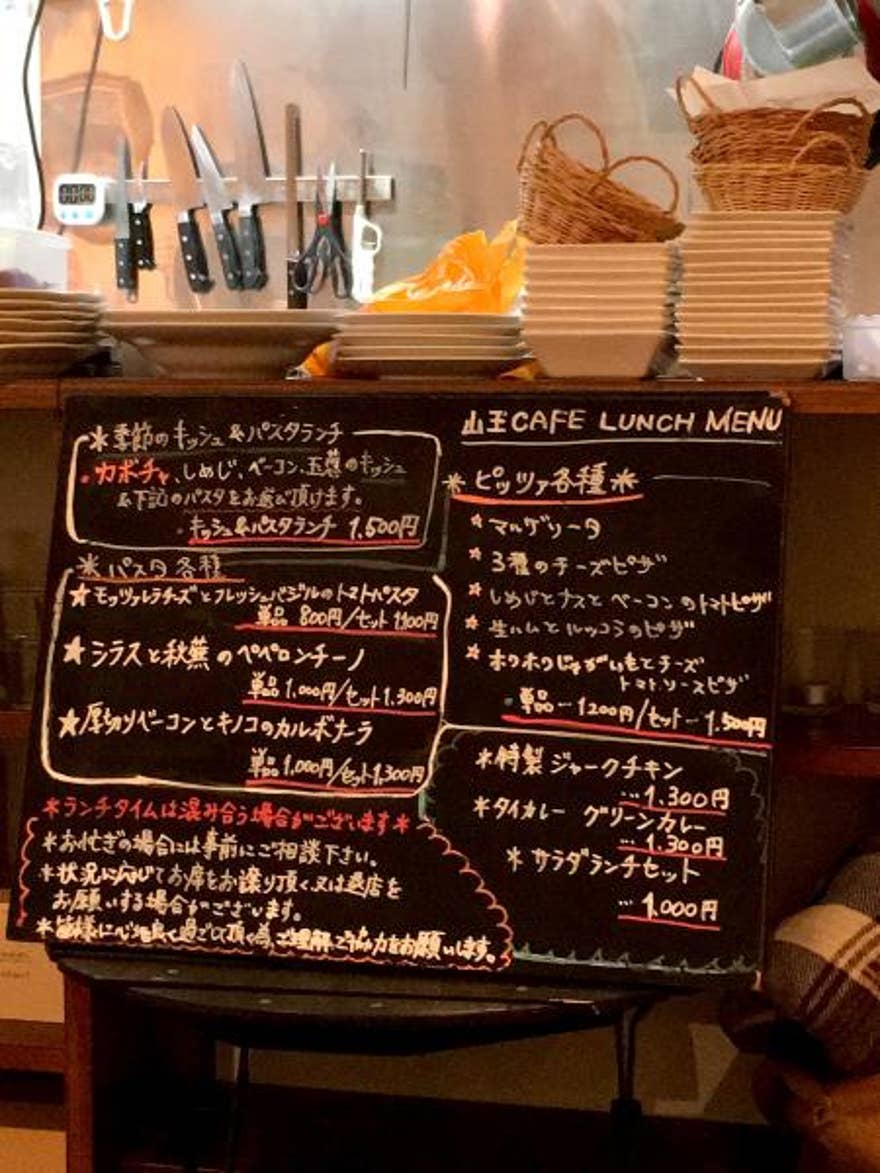 00:00
＊季節のキッシュ&パスタランチ
・カボチャ、しめじ、ベーコン、玉葱のキッシュ
&下記のパスタをお選び頂けます。
・キッシュ&パスタランチ 1,500円
＊パスタ各種
★モッツァレラチーズとフレッシュバジルのトマトパスタ
単品 800円/セット 1,100円
★シラスと秋蕪のペペロンチーノ
単品 1,000円/セット 1,300円
★厚切りベーコンとキノコのカルボナーラ
単品 1,000円/セット 1,300円
＊ランチタイムは混み合う場合がございます＊
＊お忙ぎの場合には事前にご相談下さい。
＊状況に応じてお席をお譲り頂く、又は退店を
お願いする場合がございます。
＊皆様に心地良く過ごして頂く為、ご理解、ご協力をお願いします。
山王CAFE LUNCH MENU
＊ピッツァ各種＊
★マルゲリータ
★3種のチーズピザ
★しめじとナスとベーコンのトマトピザ
★生ハムとルッコラのピザ
★ホクホクじゃがいもとチーズ
トマトソースピザ
・単品－1200円/セット－1,500円
＊特製ジャークチキン
…1,300円
＊タイカレー グリーンカレー
…1,300円
＊サラダランチセット
…1,000円